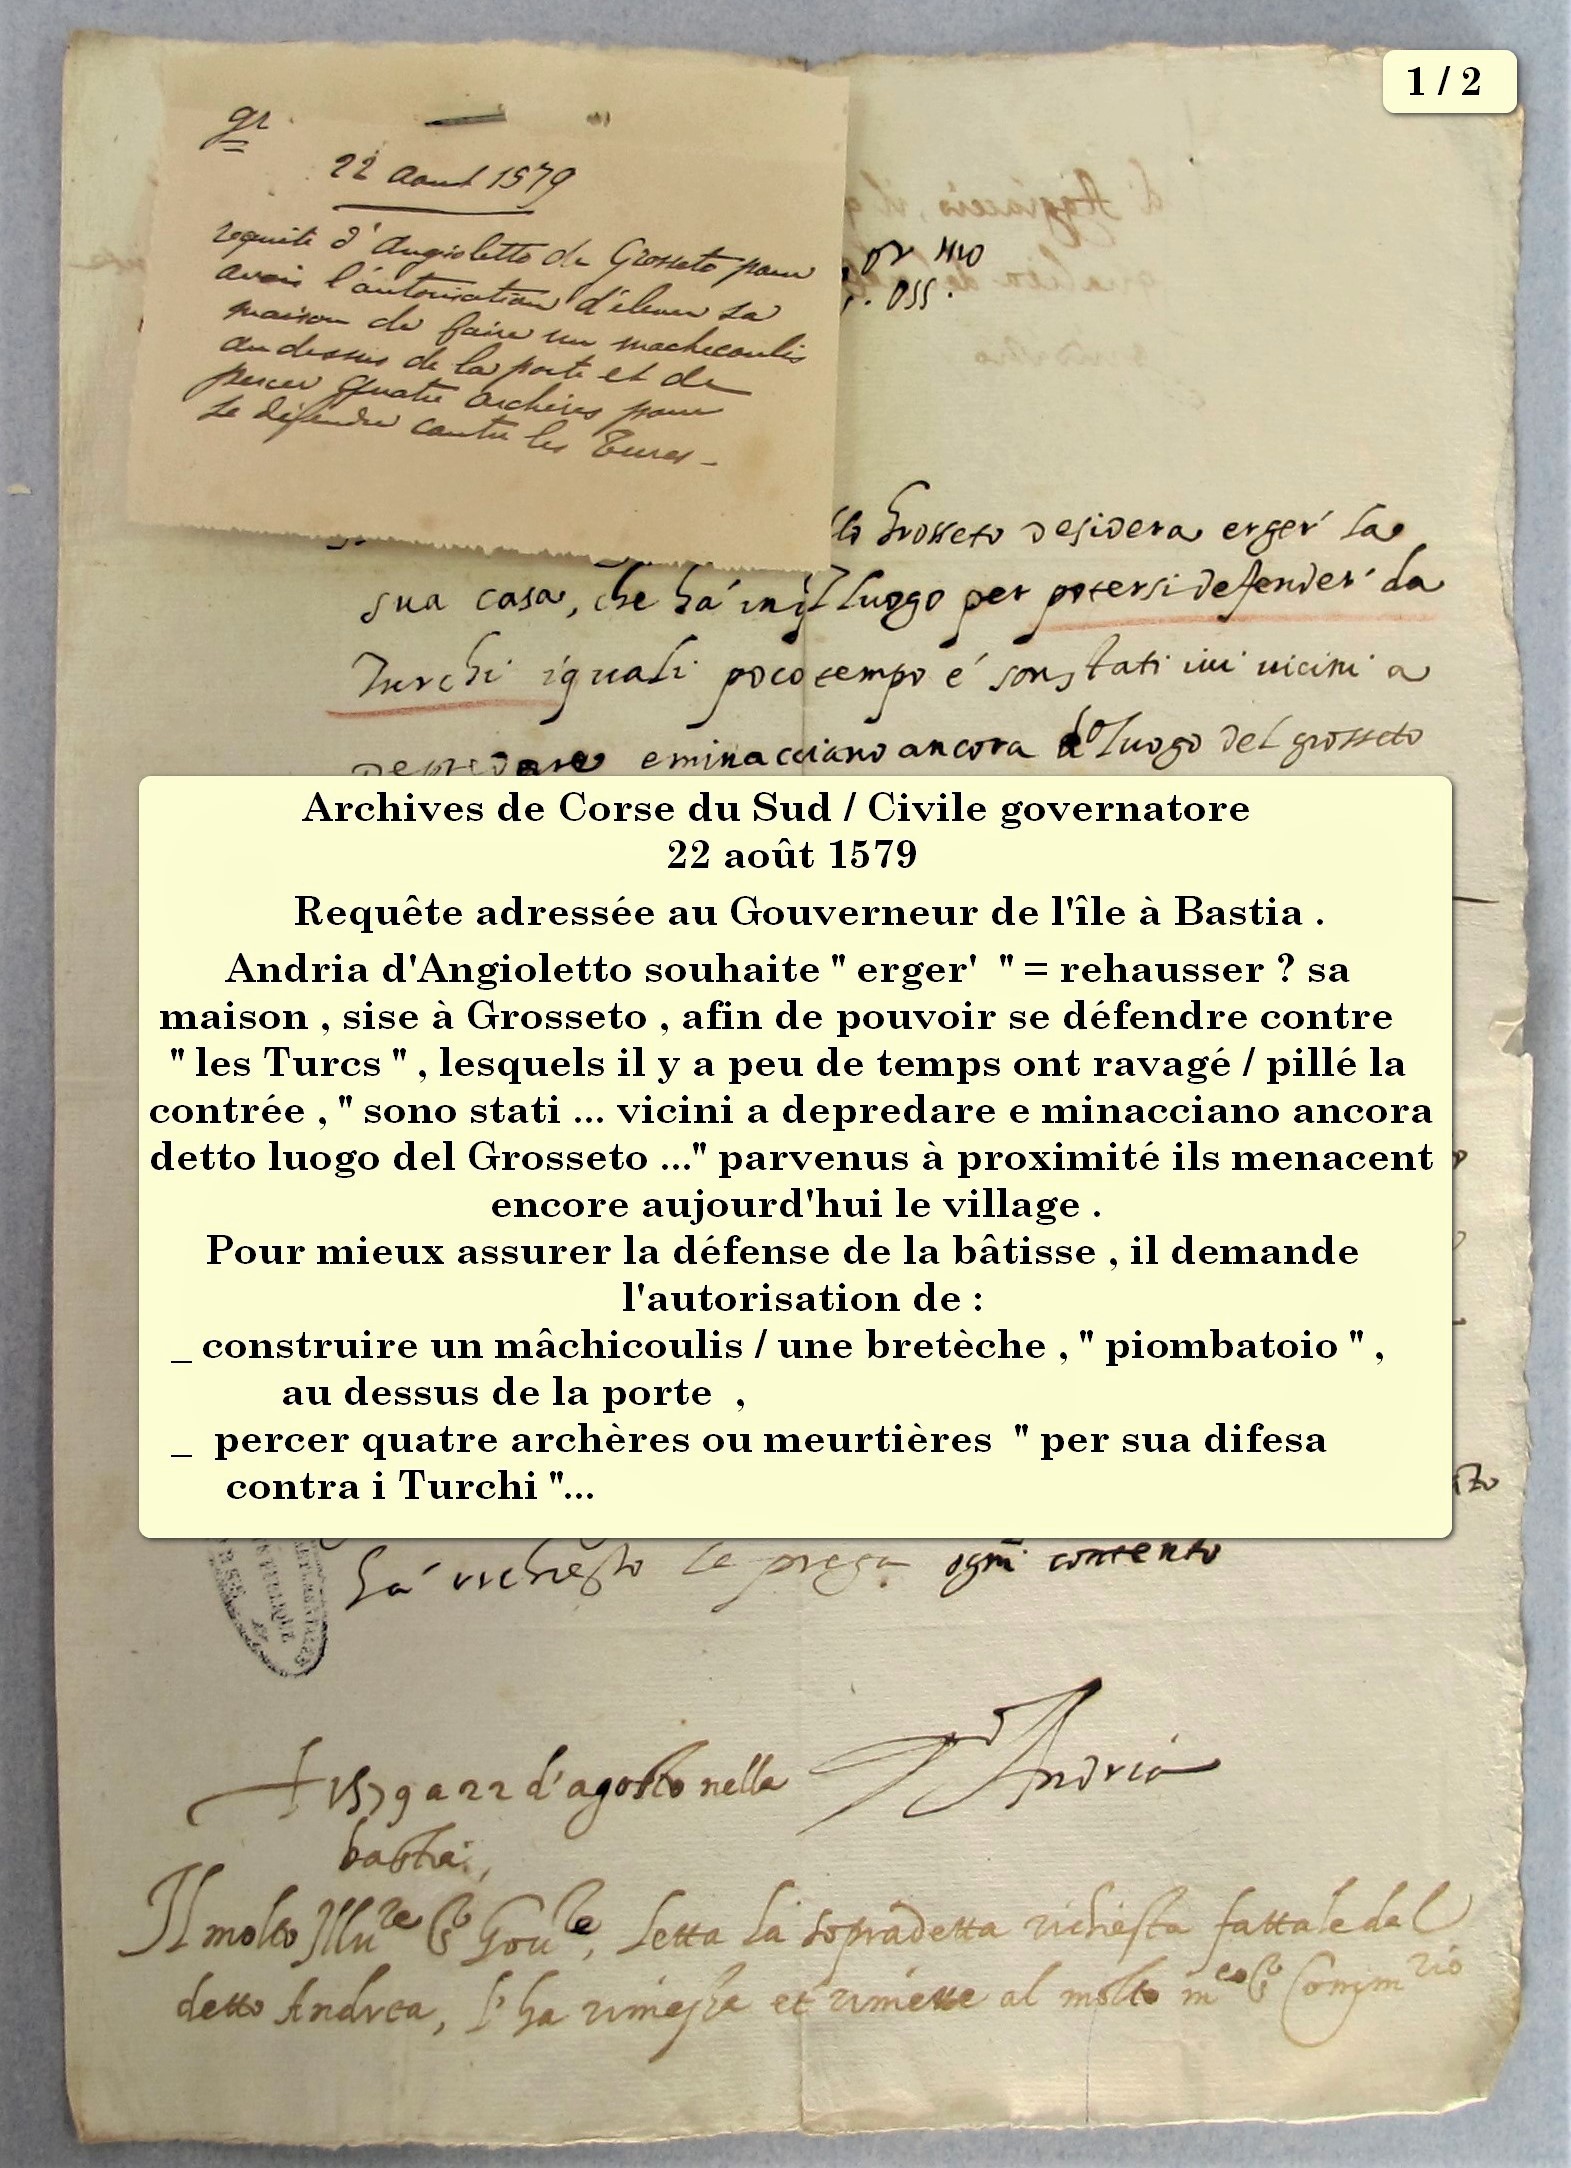 1 / 2
gr
22 aout 1579
requête d'Angioletto de Grosseto pour
avoir l'autorisation d'élever sa
maison de faire un machecoulis
au dessus de la porte et de
percer quatre archères pour
se défendre contre les Turcs _
or mio
. oss.
d'Aggiaccio, il
lo Grosseto desidera erger' la
sua casa, che ha' in luogo per potersi defender' da
Turchi i quali poco tempo é sono stati ivi vicini a
depredare e minacciano ancora do luogo del grosseto
Archives de Corse du Sud / Civile governatore
22 août 1579
Requête adressée au Gouverneur de l'île à Bastia .
Andria d'Angioletto souhaite " erger' " = rehausser ? sa
maison , sise à Grosseto , afin de pouvoir se défendre contre
" les Turcs " , lesquels il y a peu de temps ont ravagé / pillé la
contrée , " sono stati ... vicini a depredare e minacciano ancora
detto luogo del Grosseto ..." parvenus à proximité ils menacent
encore aujourd'hui le village .
Pour mieux assurer la défense de la bâtisse , il demande
l'autorisation de :
_ construire un mâchicoulis / une bretèche , " piombatoio " ,
au dessus de la porte ,
_ percer quatre archères ou meurtières " per sua difesa
contra i Turchi "...
ha' richiesto le prega ogni contento
Andria
1579 a 22 d'agosto nella
bastia,
Il molto Illure Sr Goure, letta la sopradetta richiesta fattale dal
detto Andrea, l'ha rimessa et rimette al molto mco Sr Commrio